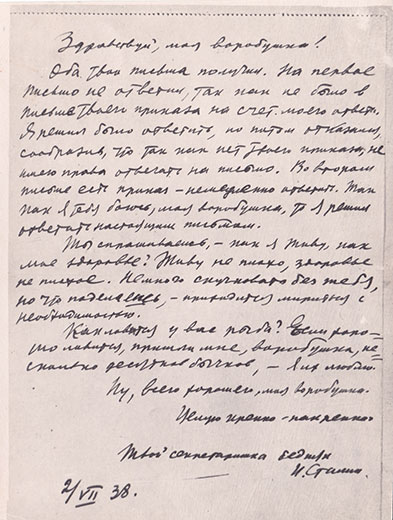 Здравствуй, моя воробушка!
Оба твои письма получил. На первое
письмо не ответил, так как не было в
письме твоего приказа на счет моего ответа.
Я решил было ответить, но потом отказался,
сообразив, что так как нет твоего приказа, не
имею права отвечать на письмо. Во втором
письме есть приказ – немедленно ответить. Так
как я тебя боюсь, моя воробушка, то я решил
ответить настоящим письмом.
Ты спрашиваешь, – как я живу, как
мое здоровье? Живу не плохо, здоровье
не плохое. Немного скучновато без тебя,
но что поделаешь, – приходится мириться с
необходимостью.
Как ловится у вас рыба? Если хоро-
шо ловится, пришли мне, воробушка, не-
сколько десятков бычков, – я их люблю.
Ну, всего хорошего, моя воробушка.
Целую крепко-накрепко.
Твой секретаришка бедняк
И. Сталин.
2/VII 38.